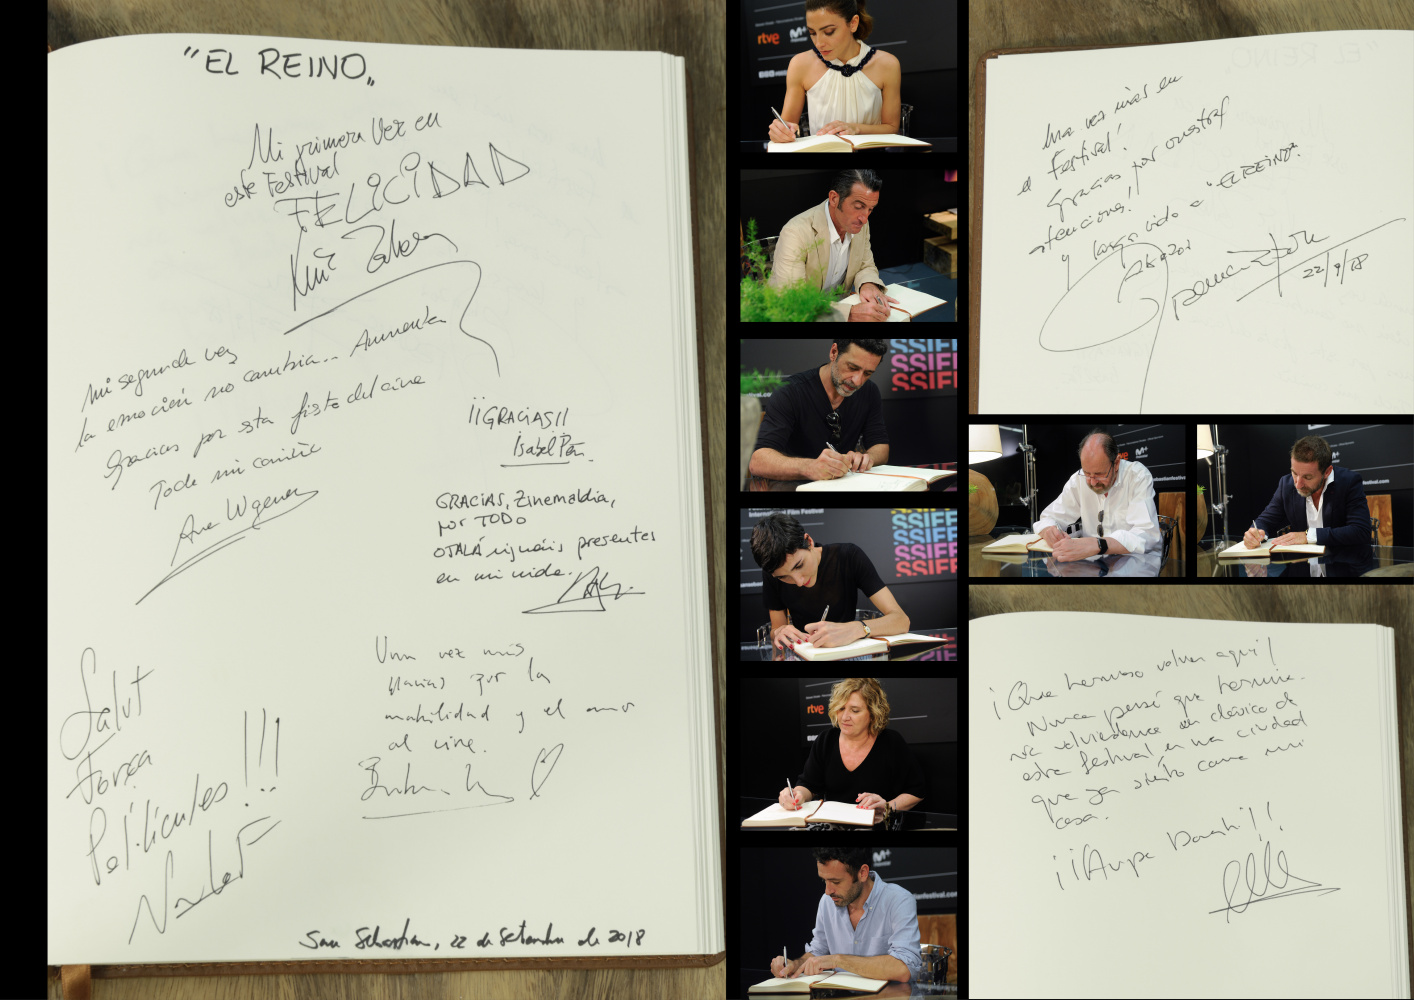 "EL REINO"
Mi primera Vez en
este Festival
FELICIDAD
Mi segunda vez
la emoción no cambia... Aumenta
Gracias por esta fiesta del cine
Todo mi cariño
Ana Wagener
¡¡GRACIAS!!
Isabel Peña.
GRACIAS, Zinemaldia,
por TODO
OJALÁ signáis presentes
en mi vida.
Una vez más
gracias por la
amabilidad y el amor
al cine.
Salut
Força
Pel·lícules!!!
San Sebastian, 22 de Setembre de 2018
rtve
M+
SSIFF
SSIFF
SSIFF
International Film Festival
SSIFF
SSIFF
SSIFF
SSIFF
rtve
M+
Una vez más en
el Festival!
Gracias por vuestras
atenciones!!
y larga vida a "EL REINO".
22/9/18
rtve
M+
¡Que hermoso volver aquí!
Nunca pensé que termina-
ría volviendome un clásico de
este festival en una ciudad
que ya siento como mi
casa.
¡¡¡Aupa Donosti!!